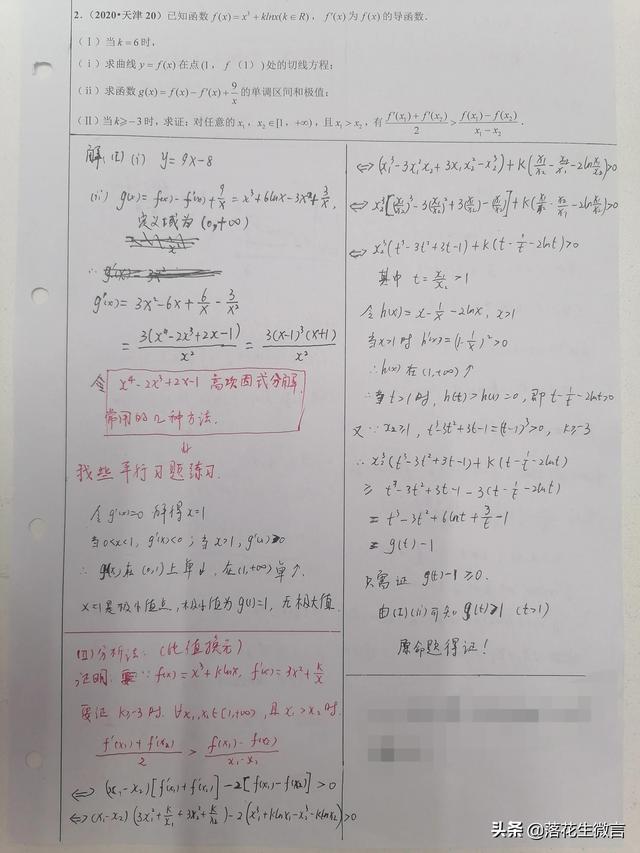 2.（2020•天津 20）已知函数 f(x)=x³+klnx(k∈R)，f′(x)为 f(x)的导函数．
（Ⅰ）当 k=6 时，
（ⅰ）求曲线 y=f(x)在点(1，f（1）)处的切线方程；
（ⅱ）求函数 g(x)=f(x)-f′(x)+9/x 的单调区间和极值；
（Ⅱ）当 k≥-3 时，求证：对任意的 x₁，x₂∈[1，+∞)，且 x₁>x₂，有 (f′(x₁)+f′(x₂))/2 > (f(x₁)-f(x₂))/(x₁-x₂)．
解：(Ⅰ) (i) y=9x-8
(ii) g(x)=f(x)-f′(x)+9/x=x³+6lnx-3x²+3/x,
定义域为 (0,+∞)
g′(x)=3x²-6x+6/x-3/x²
=3(x⁴-2x³+2x-1)/x²=3(x-1)³(x+1)/x²
令 x⁴-2x³+2x-1 高次因式分解
常用的几种方法.
⇓
找些平行习题练习.
令 g′(x)=0 解得 x=1
当 0<x<1, g′(x)<0; 当 x>1, g′(x)>0
∴ g(x) 在 (0,1) 上单↓, 在(1,+∞) 单↑.
x=1是极小值点, 极小值为 g(1)=1, 无极大值.
(Ⅱ) 分析法: (比值换元)
证明: ∵ f(x)=x³+klnx, f′(x)=3x²+k/x
要证 k≥-3 时. ∀x₁,x₂∈[1,+∞), 且 x₁>x₂ 时.
(f′(x₁)+f′(x₂))/2 > (f(x₁)-f(x₂))/(x₁-x₂)
⇔ (x₁-x₂)[f′(x₁)+f′(x₂)]-2[f(x₁)-f(x₂)]>0
⇔ (x₁-x₂)(3x₁²+k/x₁+3x₂²+k/x₂)-2(x₁³+klnx₁-x₂³-klnx₂)>0
⇔ (x₁³-3x₁²x₂+3x₁x₂²-x₂³)+k(x₁/x₂-x₂/x₁-2ln x₁/x₂)>0
⇔ x₂³[(x₁/x₂)³-3(x₁/x₂)²+3(x₁/x₂)-1]+k(x₁/x₂-x₂/x₁-2ln x₁/x₂)>0
⇔ x₂³(t³-3t²+3t-1)+k(t-1/t-2lnt)>0
其中 t=x₁/x₂>1
令 h(x)=x-1/x-2lnx, x>1
当x>1时 h′(x)=(1-1/x)²>0
∴h(x) 在 (1,+∞)↑
∴当 t>1 时, h(t)>h(1)=0, 即 t-1/t-2lnt>0
又∵x₂≥1, t³-3t²+3t-1=(t-1)³>0, k≥-3
∴ x₂³(t³-3t²+3t-1)+k(t-1/t-2lnt)
≥ t³-3t²+3t-1-3(t-1/t-2lnt)
= t³-3t²+6lnt+3/t-1
= g(t)-1
只需证 g(t)-1≥0.
由(Ⅰ)(ii)可知 g(t)≥1 (t>1)
原命题得证！
头条 @落花生微言